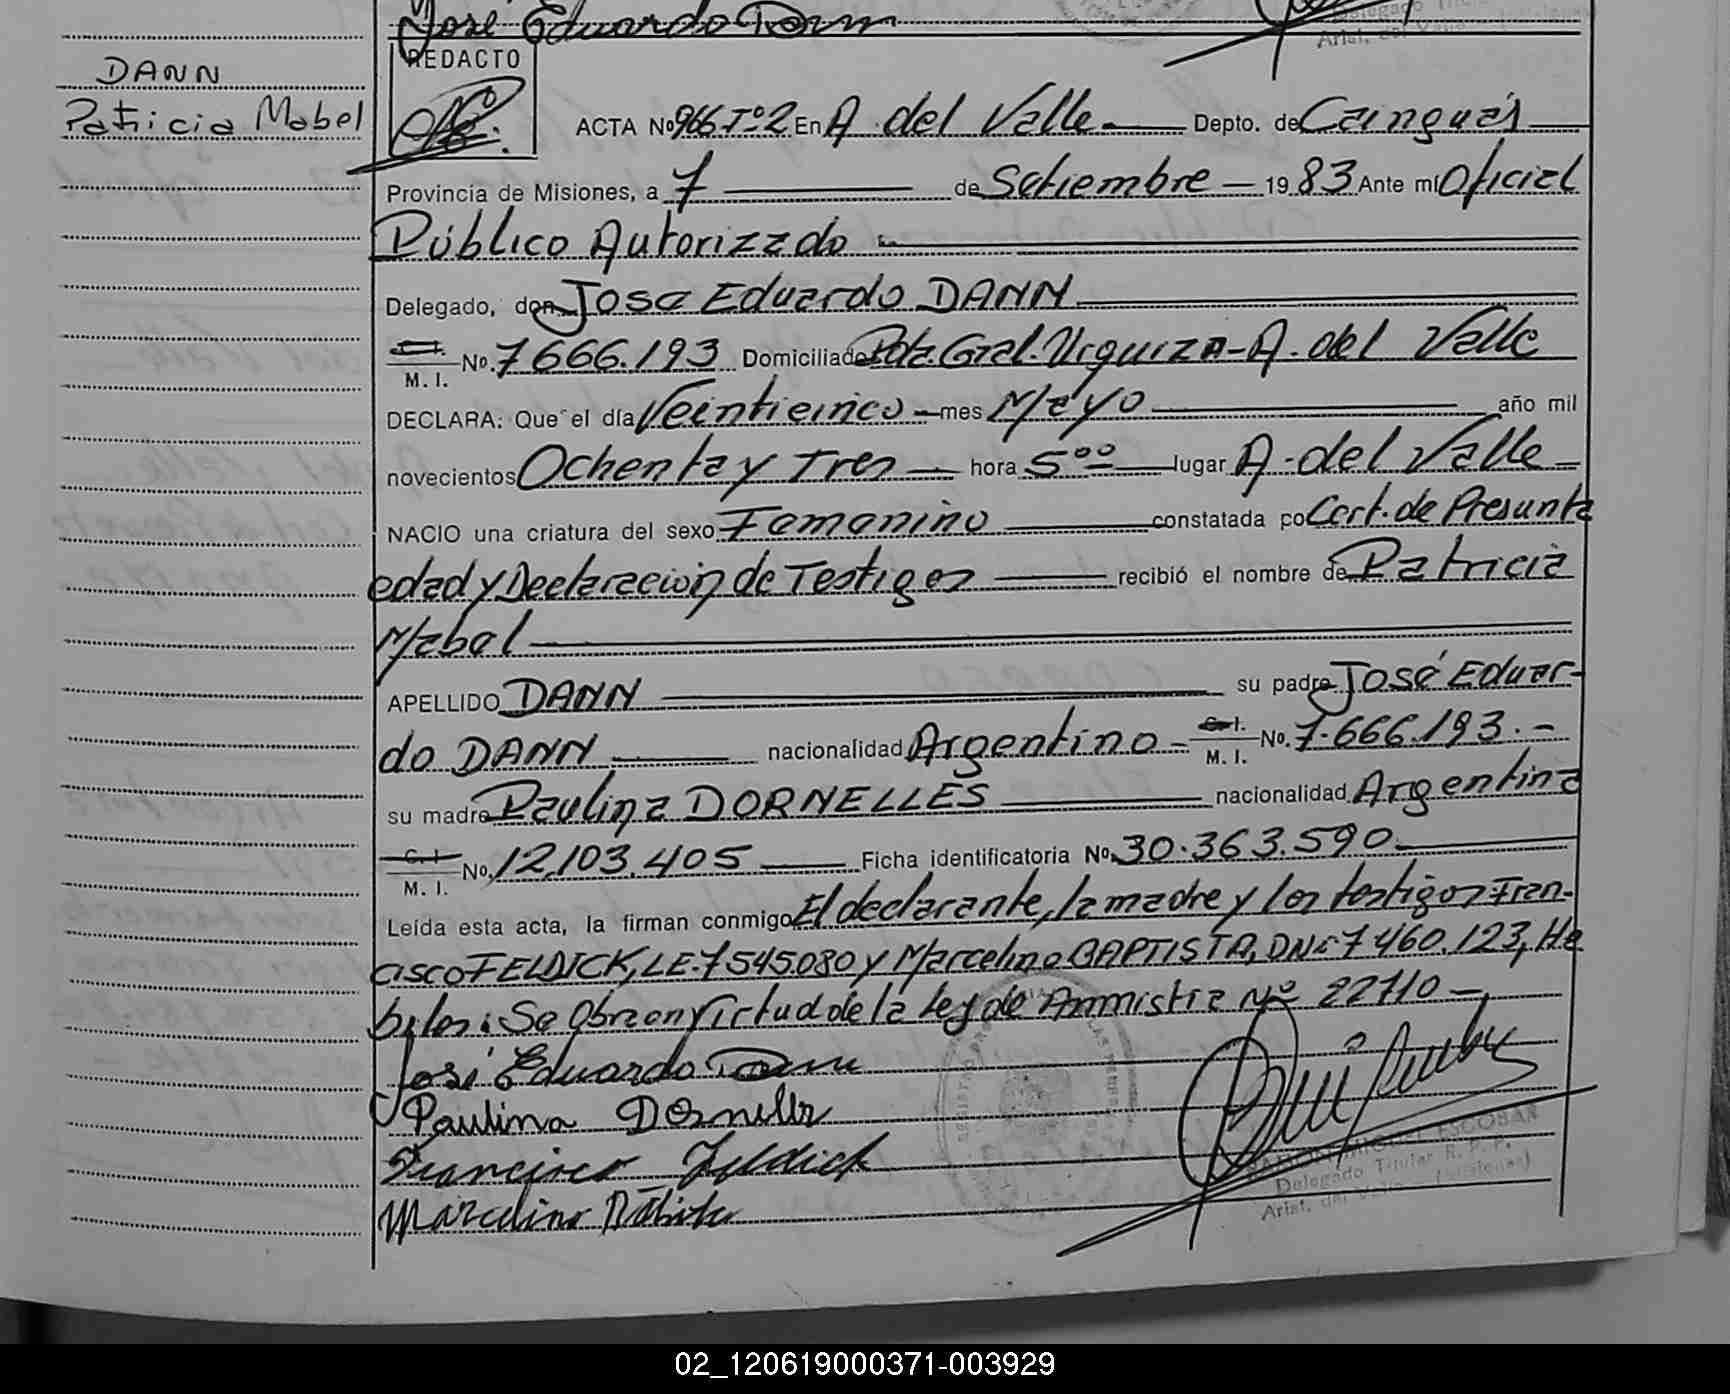 José Eduardo Dann
REDACTO
DANN
Patricia Mabel
ACTA No 966 Tº2. En A. del Valle Depto. de Cainguás
Provincia de Misiones, a 7 de Setiembre 19 83 Ante mí Oficial
Público Autorizado
Delegado, don José Eduardo DANN
C.I.
M. I. No. 7666.193 Domiciliado Pto. Gral. Urquiza-A. del Valle
DECLARA: Que el día Veinticinco mes Mayo año mil
novecientos Ochenta y Tres hora 5ºº lugar A. del Valle
NACIO una criatura del sexo Femenino constatada po Cert. de Presunta
edad y Declaración de Testigos recibió el nombre de Patricia
Mabel
APELLIDO DANN su padre José Eduar-
do DANN nacionalidad Argentino C.I. M. I. No. 7.666.193.-
su madre Paulina DORNELLES nacionalidad Argentina
C.I.
M. I. No. 12,103.405 Ficha identificatoria No. 30.363.590
Leída esta acta, la firman conmigo El declarante, la madre y los testigos Fran-
cisco FELDICK, LE. 7545.080 y Marcelino BAPTISTA, DNI: 7460.123, Há
biles: Se Obra en Virtud de la Ley de Ammistia Nº 22710-
José Eduardo Dann
Paulina Dornelles
Francisco Feldick
Marcelino Batista
RAMON MIGUEL ESCOBAR
Delegado Titular R. P. P.
Arist. del Valle (Misiones)
02_120619000371-003929